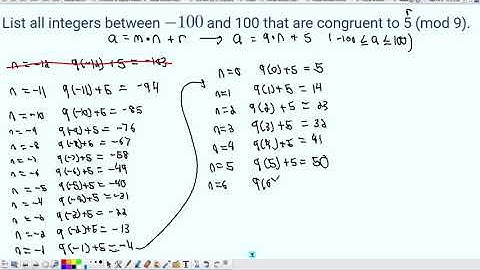 List all integers between −100 and 100 that are congruent to 5 (mod 9).
r
a = m·n + r → a = 9·n + 5 (-100 ≤ a ≤ 100)
n = -12 9(-12)+5 = -103
n = -11 9(-11)+5 = -94
n = -10 9(-10)+5 = -85
n = -9 9(-9)+5 = -76
n = -8 9(-8)+5 = -67
n = -7 9(-7)+5 = -58
n = -6 9(-6)+5 = -49
n = -5 9(-5)+5 = -40
n = -4 9(-4)+5 = -31
n = -3 9(-3)+5 = -22
n = -2 9(-2)+5 = -13
n = -1 9(-1)+5 = -4
n=0 9(0)+5 = 5
n=1 9(1)+5 = 14
n=2 9(2)+5 = 23
n=3 9(3)+5 = 32
n=4 9(4)+5 = 41
n=5 9(5)+5 = 50
n=6 9(6